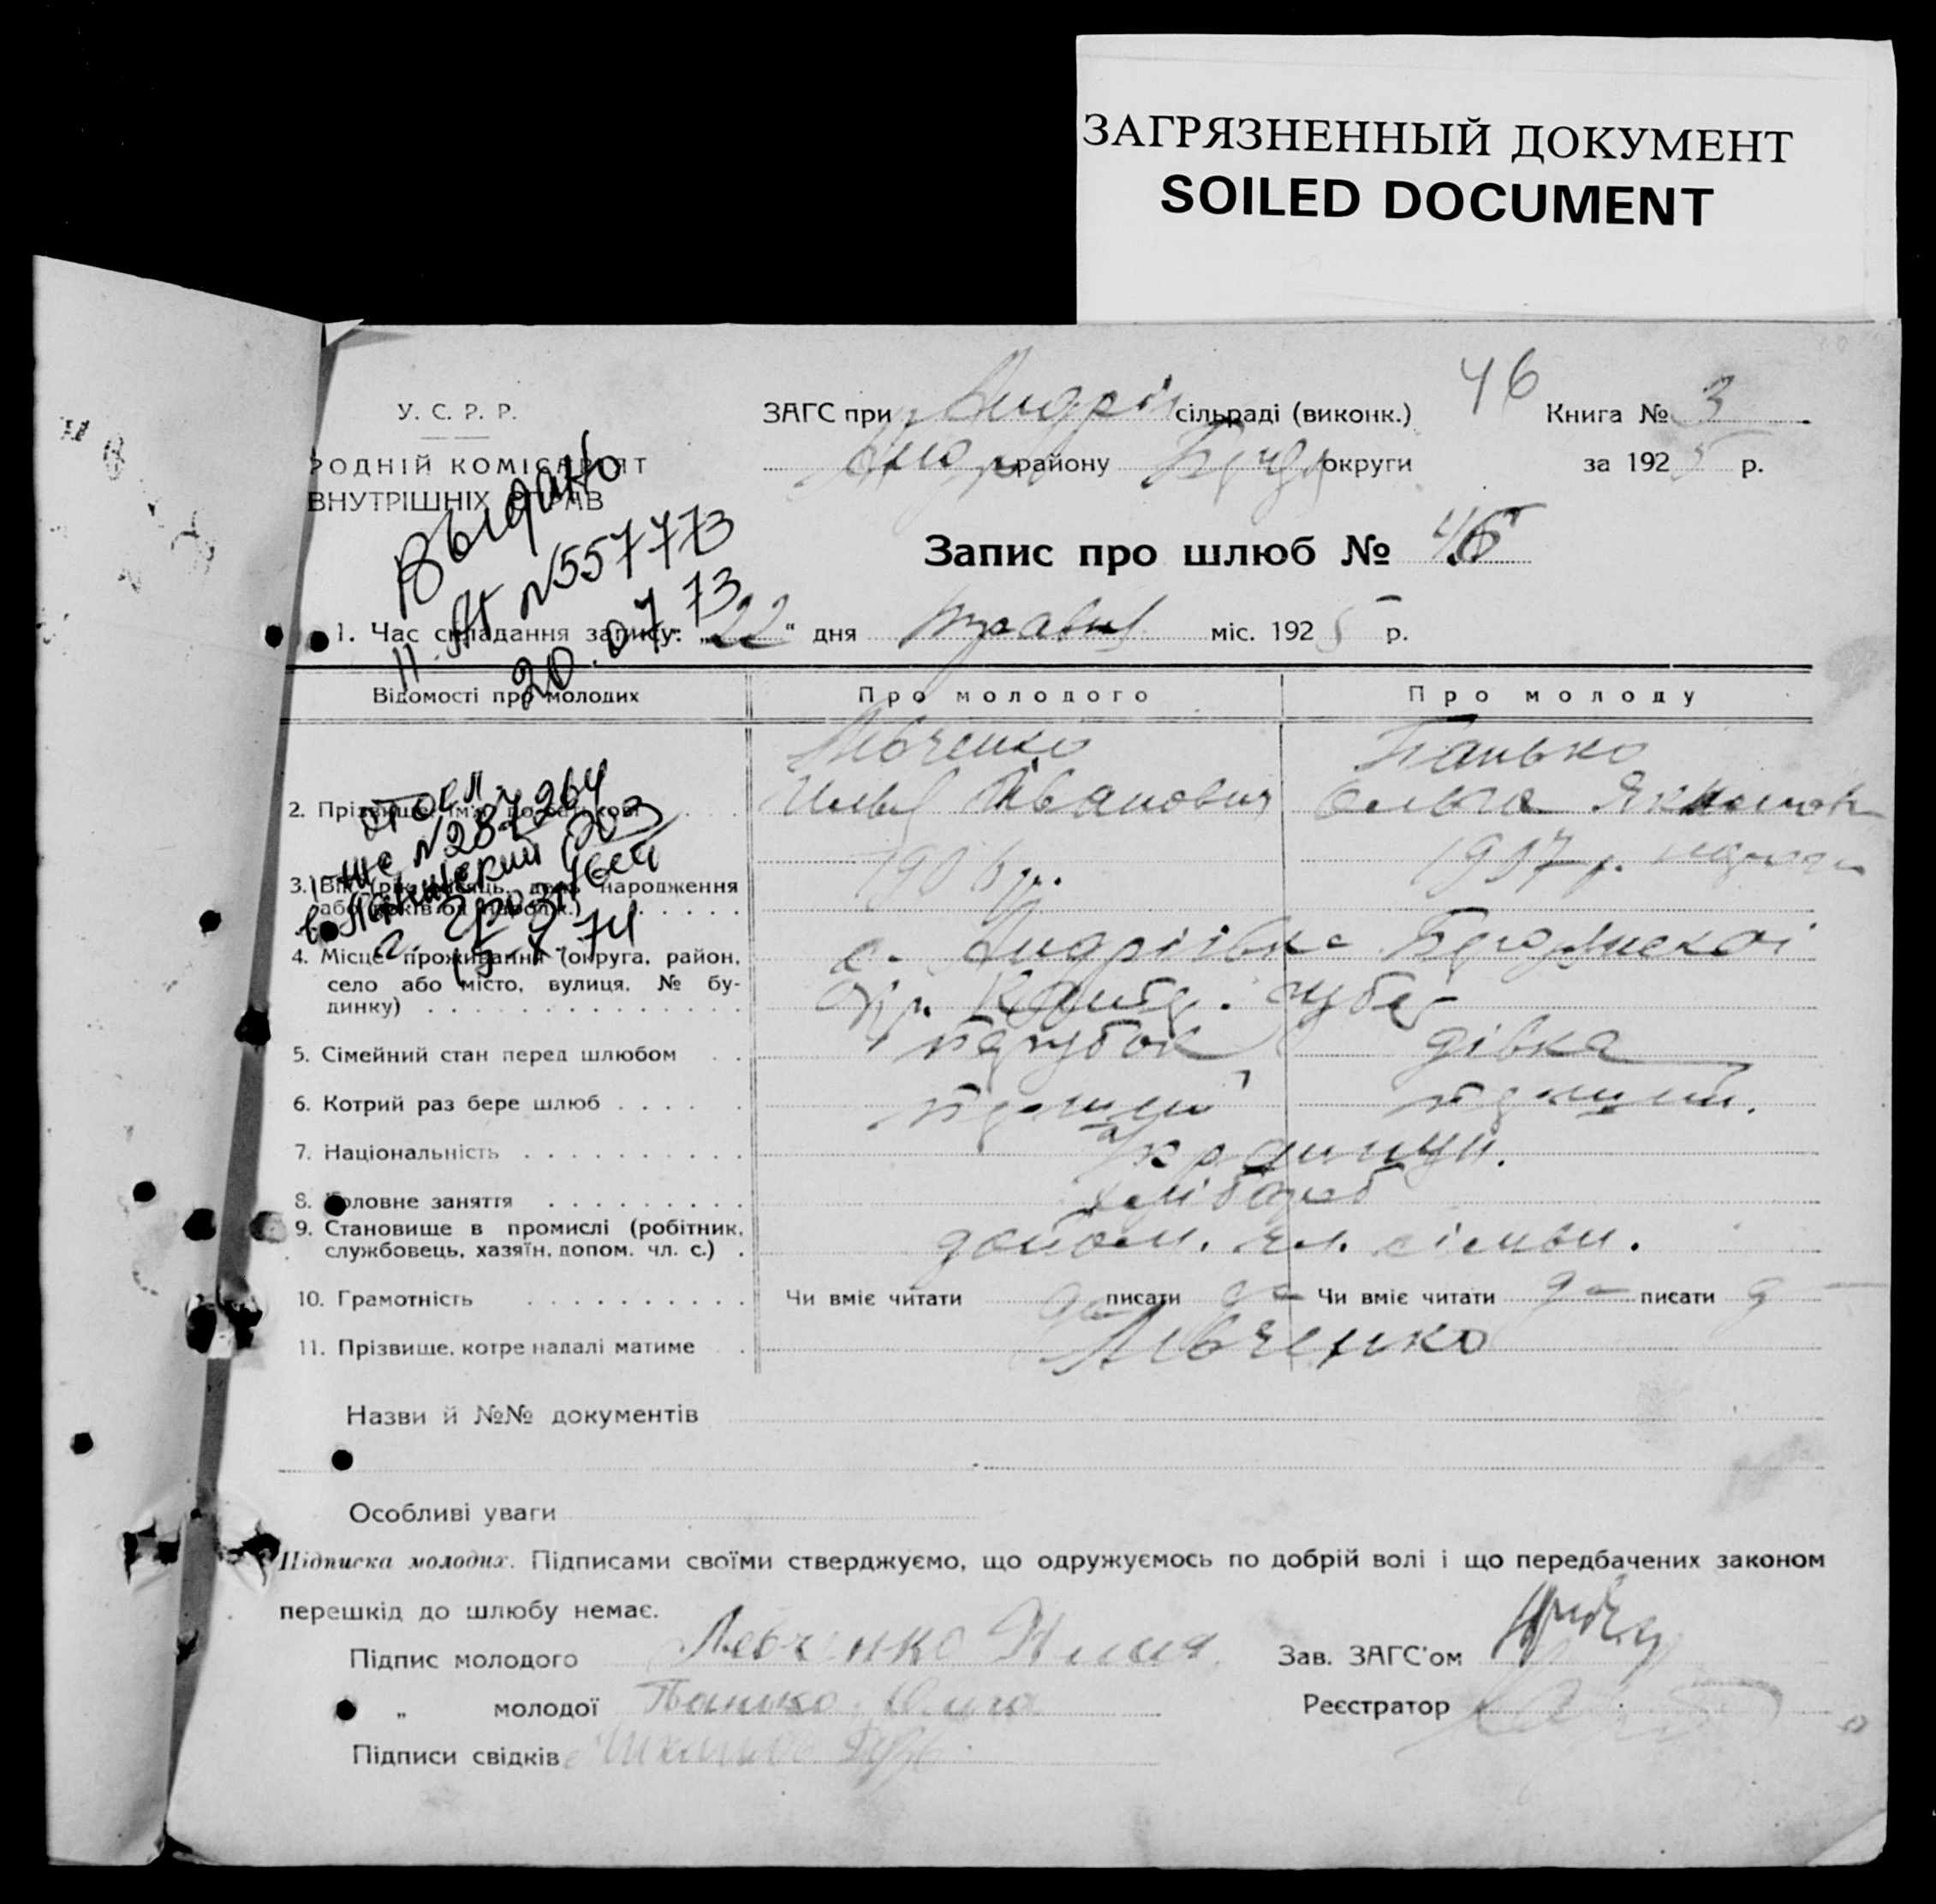 ЗАГРЯЗНЕННЫЙ ДОКУМЕНТ
SOILED DOCUMENT
У. С. Р. Р.
РОДНІЙ КОМІСАРІЯТ
ВНУТРІШНІХ СПРАВ
ЗАГС при Андрів сільраді (виконк.) 46 Книга № 3
району округи за 1925 р.
Запис про шлюб № 46
Выдано
№557773
20.07 73
1. Час складання запису: „22“ дня міс. 1925 р.
Відомості про молодих Про молодого Про молоду
Левченко Панько
2. Прізвище, ім'я, по батькові Ілья Іванович Ольга
№287264
3. Вік (рік, місяць, день народження 1906 р. 1907 р.
74
4. Місце проживання (округа, район, с. Андріївка Бердянської
село або місто, вулиця, № бу-
динку) губер
5. Сімейний стан перед шлюбом парубок дівка
6. Котрий раз бере шлюб перший перший.
7. Національність українці.
8. Головне заняття хлібороб
9. Становище в промислі (робітник,
службовець, хазяїн, допом. чл. с.) допом. чл. сімьи.
10. Грамотність Чи вміє читати да писати да Чи вміє читати да писати д
11. Прізвище, котре надалі матиме Левченко
Назви й №№ документів
Особливі уваги
Підписка молодих. Підписами своїми стверджуємо, що одружуємось по добрій волі і що передбачених законом
перешкід до шлюбу немає.
Підпис молодого Левченко Илия Зав. ЗАГС'ом
„ молодої Панько Ольга Реєстратор
Підписи свідків